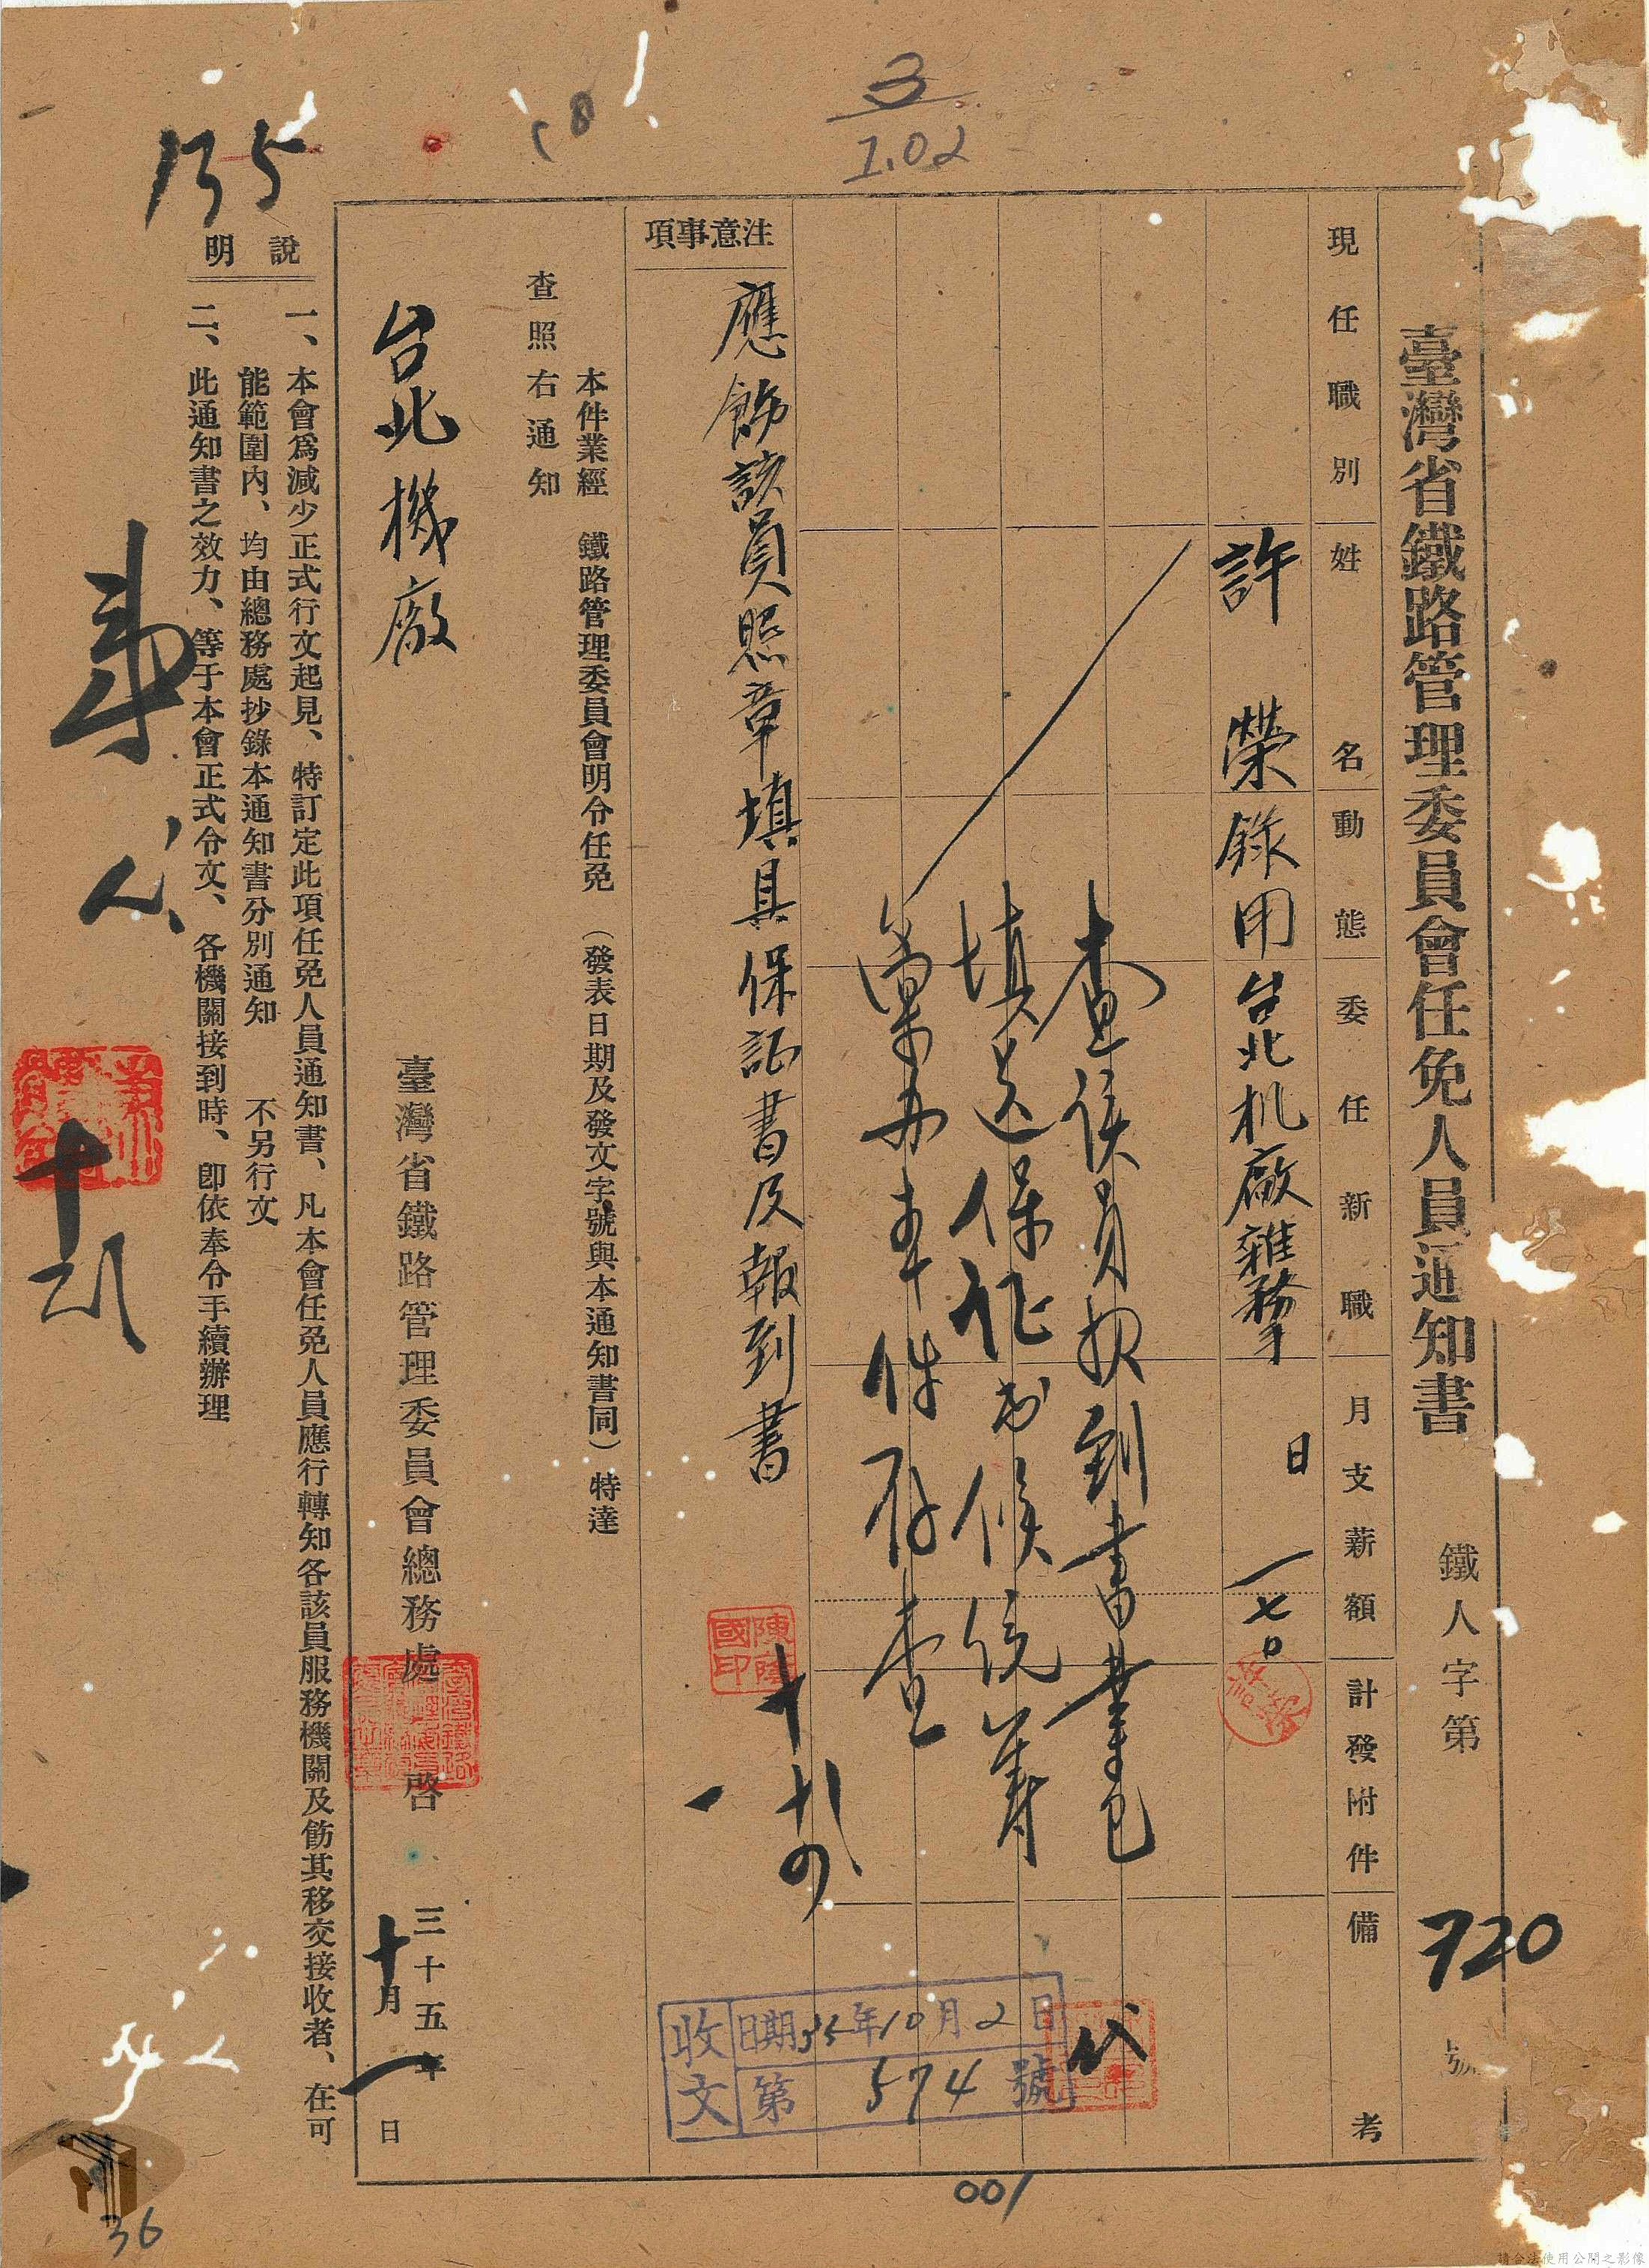 臺灣省鐵路管理委員會任免人員通知書
鐵人字第 720 號
現任職別
姓名
動態
委任新職
月支薪額
計發附件
備考
許榮
錄用
台北机廠雜務手
日一.七0
查俟員投到書業已
填送保证书候侵筹
案办本件存查
注意事項
應飭該員照章填具保証書及報到書
陳隆國印
本件業經 鐵路管理委員會明令任免(發表日期及發文字號與本通知書同)特達
查照右通知
台北機廠
臺灣省鐵路管理委員會總務處啓
三十五年十月一日
說明
一、本會爲減少正式行文起見、特訂定此項任免人員通知書、凡本會任免人員應行轉知各該員服務機關及飭其移交接收者、在可
能範圍內、均由總務處抄錄本通知書分別通知 不另行文
二、此通知書之效力、等于本會正式令文、各機關接到時、卽依奉令手續辦理
收文
日期35年10月2日
第574號
3
1.02
135
001
36
請合法使用公開之影像